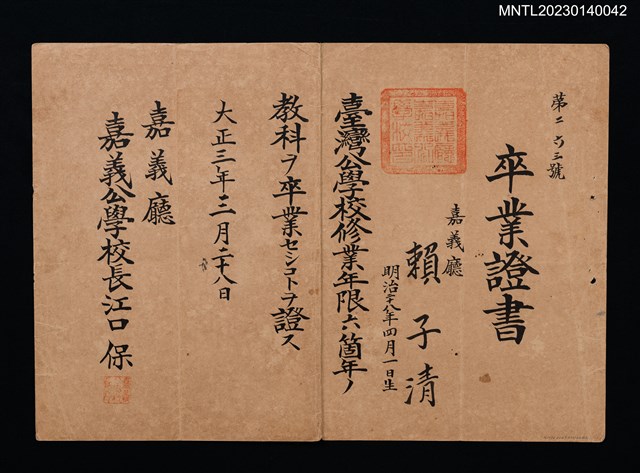 MNTL20230140042
第二六三號
卒業證書
嘉義廳
賴子清
明治廿八年四月一日生
臺灣公學校修業年限六箇年ノ
教科ヲ卒業セシコトヲ證ス
大正三年三月二十八日
嘉義廳
嘉義公學校長江口保